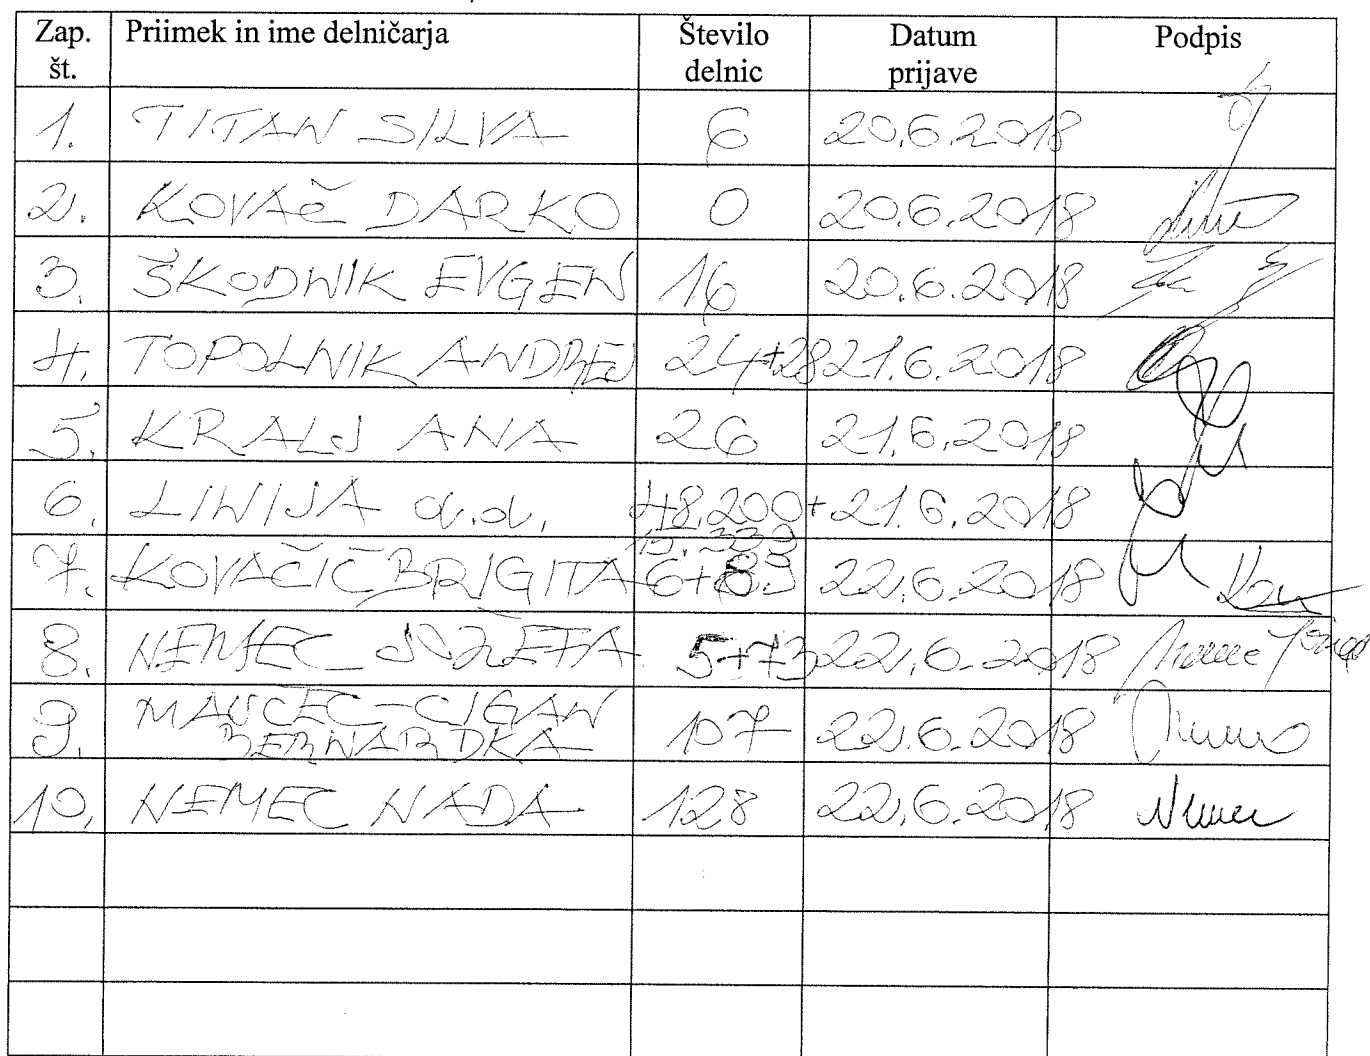 Zap. št. Priimek in ime delničarja Število delnic Datum prijave Podpis
1. TITAN SILVA 6 20.6.2018
2. KOVAČ DARKO 0 20.6.2018
3. ŠKODNIK EVGEN 16 20.6.2018
4. TOPOLNIK ANDREJ 24+28 21.6.2018
5. KRALJ ANA 26 21.6.2018
6. LINIJA d.d. 48.200+ 21.6.2018
15.333
7. KOVAČIČ BRIGITA 6+83 22.6.2018
8. NEMEC JOŽEFA 5+73 22.6.2018
9. MAUČEC-CIGAN BERNARDKA 107 22.6.2018
10. NEMEC NADA 128 22.6.2018 Nemec